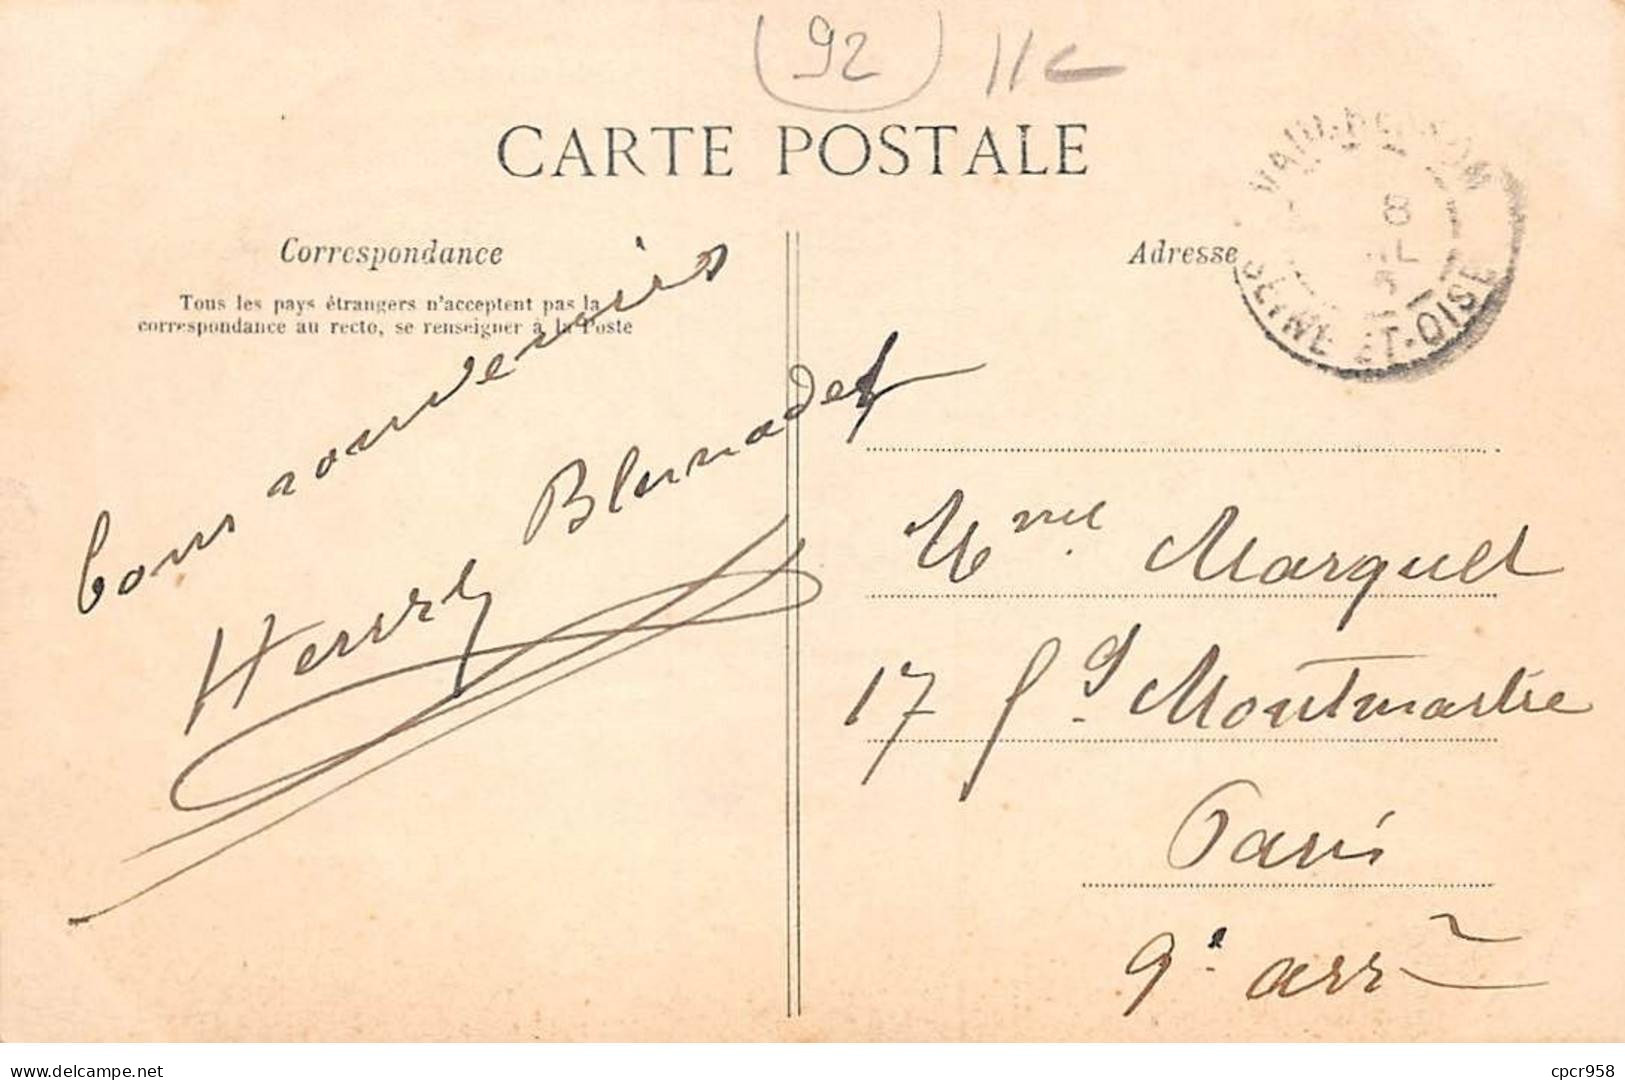 (92) 11€
CARTE POSTALE
Correspondance
Tous les pays étrangers n'acceptent pas la
correspondance au recto, se renseigner à la Poste
bons souvenirs
Henry Blernadet
Adresse
8
SEINE-ET-OISE
Mme Marquet
17 fg Montmartre
Paris
9e arrt
delcampe.net
cpcr958